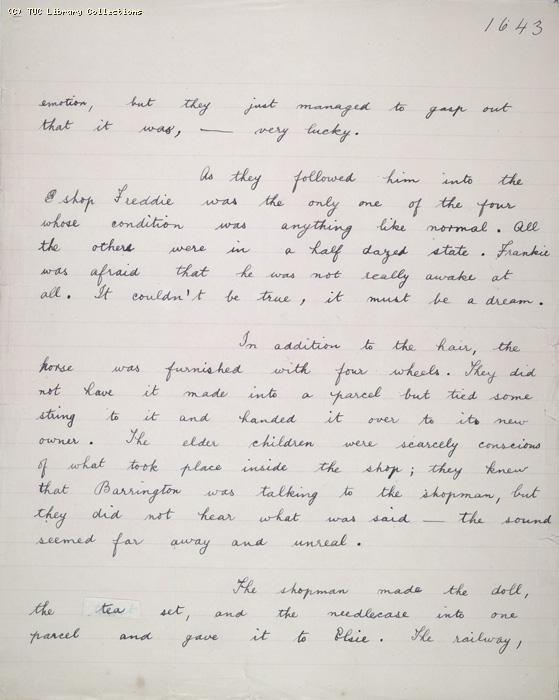 (C) TUC Library Collections
1643
emotion, but they just managed to gasp out
that it was, — very lucky.
As they followed him into the
shop Freddie was the only one of the four
whose condition was anything like normal. All
the others were in a half dazed state. Frankie
was afraid that he was not really awake at
all. It couldn't be true, it must be a dream.
In addition to the hair, the
horse was furnished with four wheels. They did
not have it made into a parcel but tied some
string to it and handed it over to its new
owner. The elder children were scarcely conscious
of what took place inside the shop; they knew
that Barrington was talking to the shopman, but
they did not hear what was said — the sound
seemed far away and unreal.
The shopman made the doll,
the tea set, and the needlecase into one
parcel and gave it to Elsie. The railway,